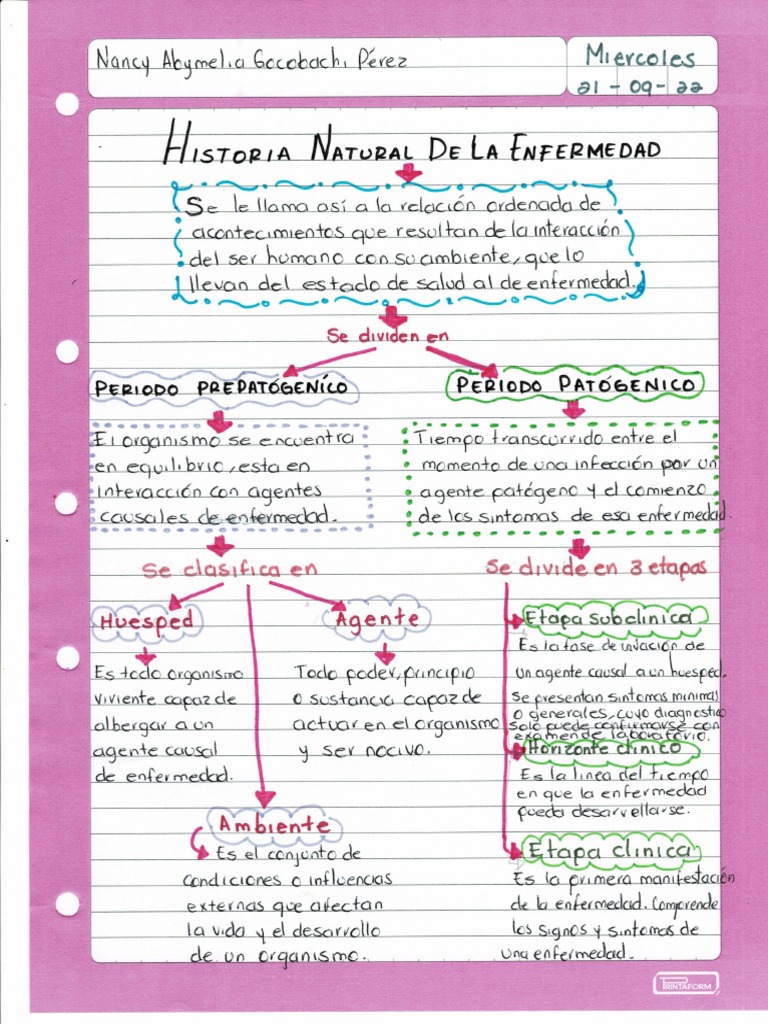 Nancy Abymelia Gocobachi Pérez
Miercoles
21-09-22
HISTORIA NATURAL DE LA ENFERMEDAD
Se le llama así a la relación ordenada de
acontecimientos que resultan de la interacción
del ser humano con su ambiente, que lo
llevan del estado de salud al de enfermedad.
Se dividen en
PERIODO PREPATÓGENÍCO
El organismo se encuentra
en equilibrio, esta en
interacción con agentes
causales de enfermedad.
Se clasifica en
Huesped
Es todo organismo
viviente capaz de
albergar a un
agente causal
de enfermedad.
Agente
Todo poder, principio
o sustancia capaz de
actuar en el organismo
y ser nocivo.
Ambiente
Es el conjunto de
condiciones o influencias
externas que afectan
la vida y el desarrollo
de un organismo.
PERIODO PATÓGENICO
Tiempo transcurrido entre el
momento de una infección por un
agente patógeno y el comienzo
de los sintomas de esa enfermedad.
Se divide en 3 etapas
Etapa subclinica
Es la fase de invación de
un agente causal a un huesped.
Se presentan sintomas minimal
o generales, cuyo diagnostico
solo puede confirmarse con
examen de laboratorio.
Horizonte clinico
Es la linea del tiempo
en que la enfermedad
pueda desarvellarse.
Etapa clinica
Es la primera manifestación
de la enfermedad. Comprende
los signos y sintomas de
una enfermedad.
PRINTAFORM